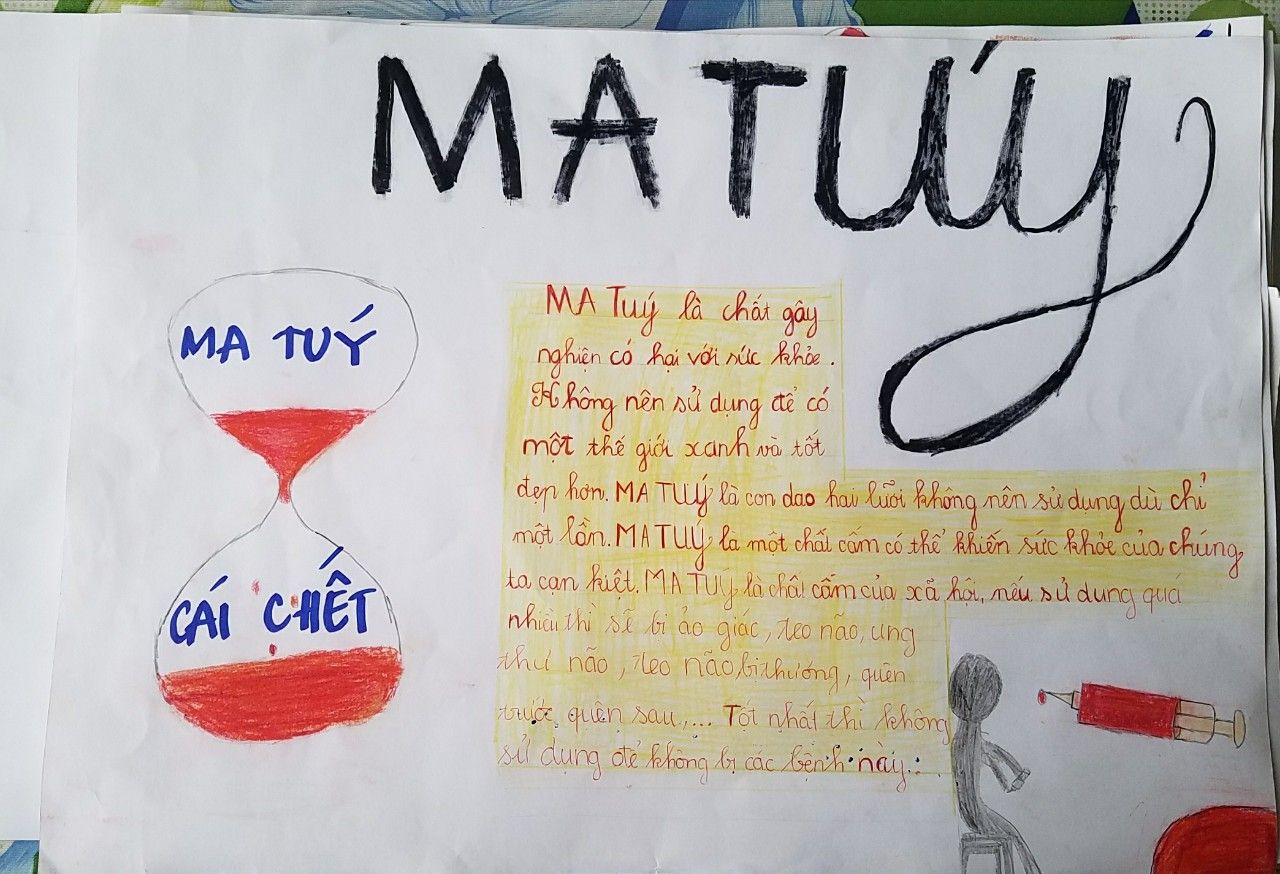 MA TUÝ
MA TUÝ
CÁI CHẾT
MA Tuý là chất gây
nghiện có hại với sức khỏe.
Không nên sử dụng để có
một thế giới xanh và tốt
đẹp hơn. MA TUÝ là con dao hai lưỡi không nên sử dụng dù chỉ
một lần. MA TUÝ là một chất cấm có thể khiến sức khỏe của chúng
ta cạn kiệt. MA TUÝ là chất cấm của xã hội, nếu sử dụng quá
nhiều thì sẽ bị ảo giác, teo não, ung
thư não, teo não, bị thương, quên
trước quên sau,... Tốt nhất thì không
sử dụng để không bị các bệnh này.